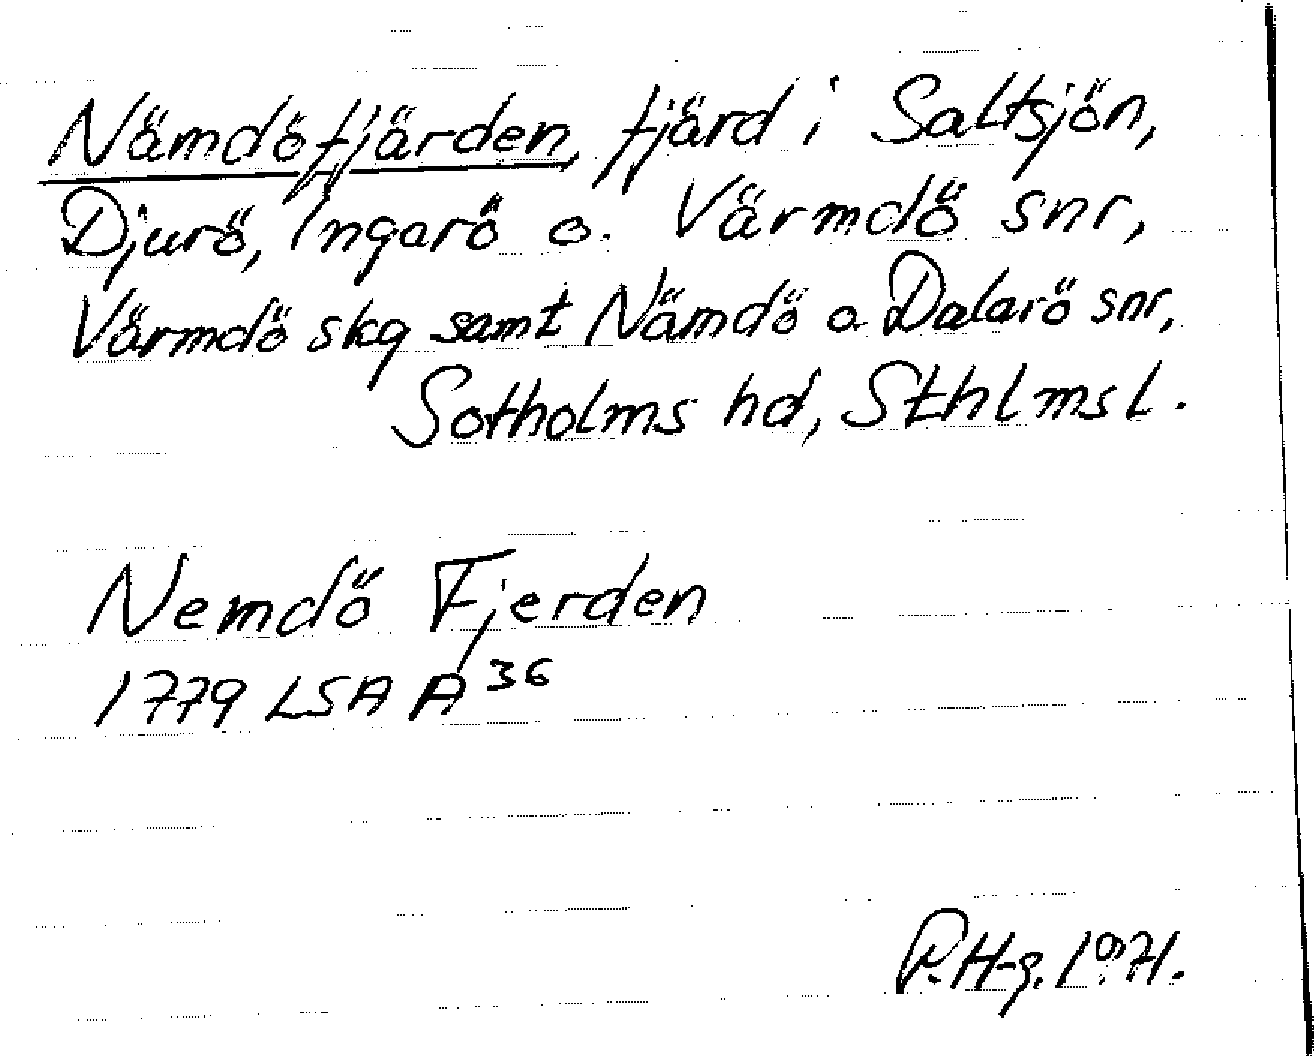 Nämdöfjärden, fjärd i Saltsjön,
Djurö, Ingarö o. Värmdö snr,
Värmdö skg samt Nämdö o Dalarö snr,
Sotholms hd, Sthlms l.
Nemdö Fjerden
1779 LSA A 36
P. H-g. 1971.